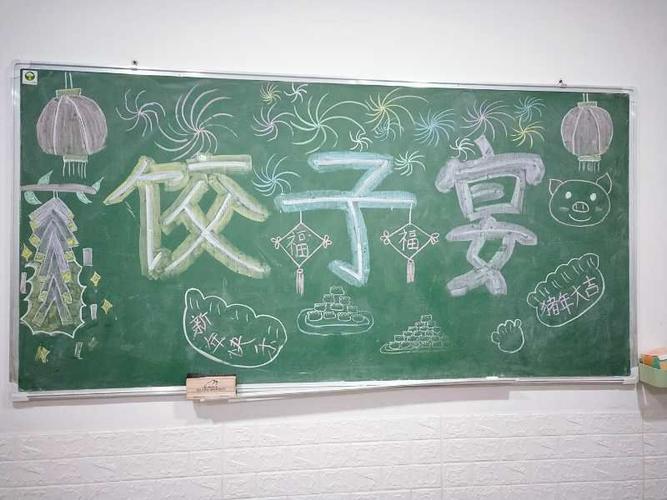 饺子宴
福 福
猪年大吉
新年快乐